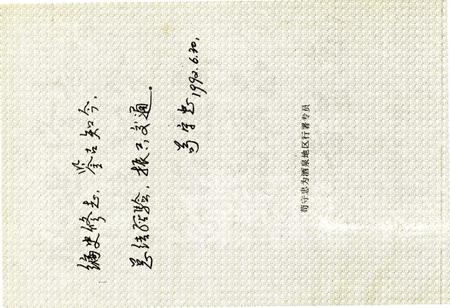 编史修志，鉴古知今，
总结经验，振兴交通。
苟守忠 1992.6.20.
苟守忠为酒泉地区行署专员